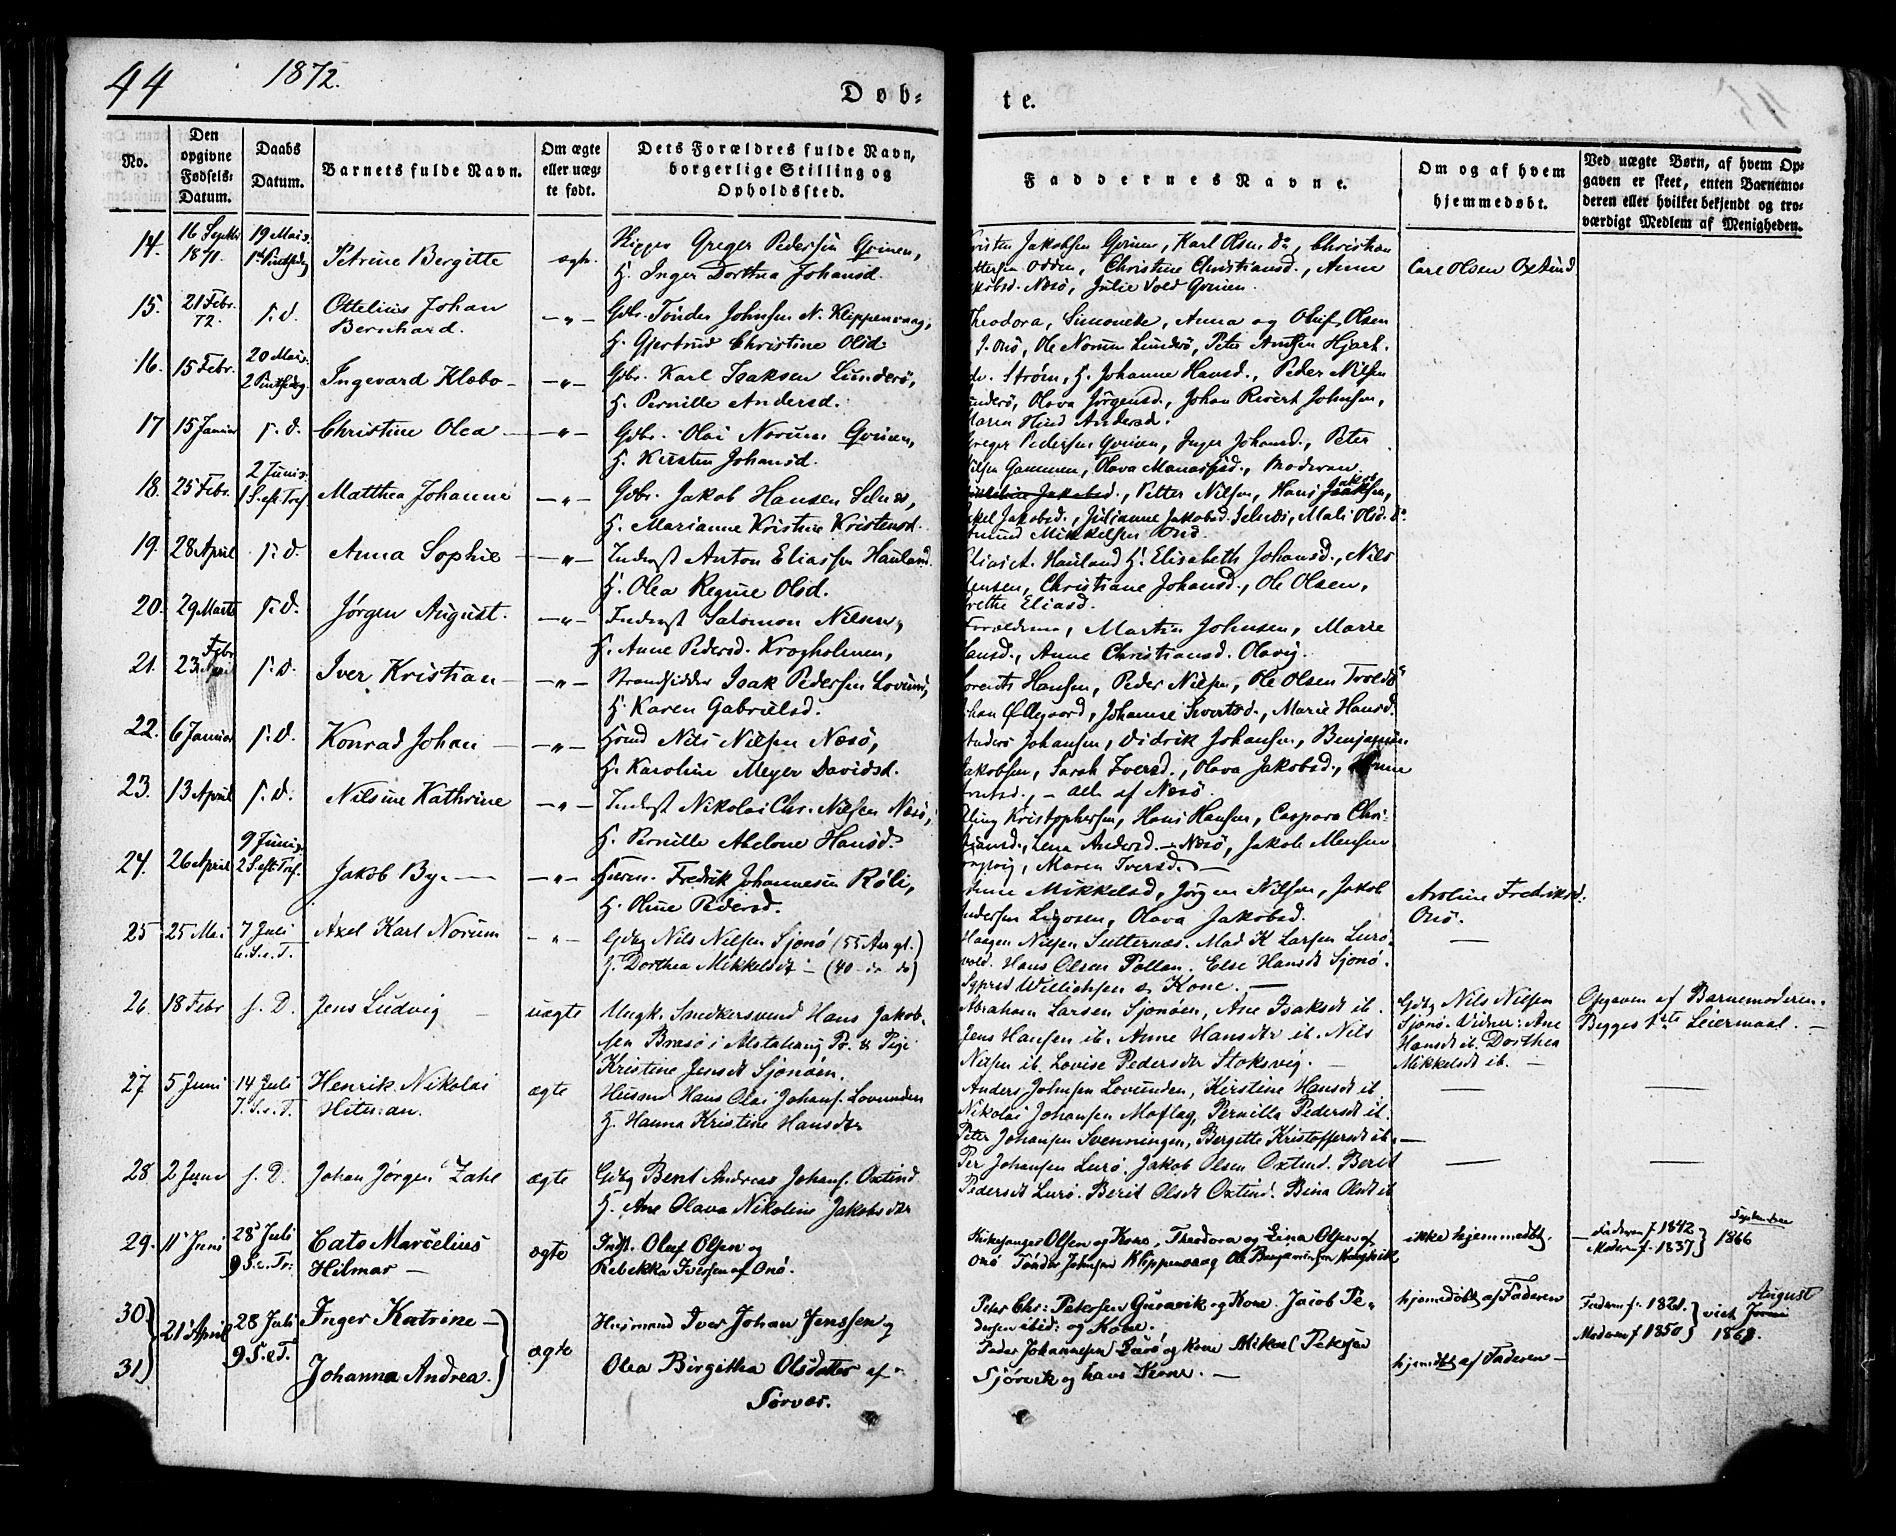 44
1872.
Døb-
te.
No.
Den opgivne Fødsels-Datum.
Daabs Datum.
Barnets fulde Navn.
Om ægte eller uægte født.
Dets Forældres fulde Navn, borgerlige Stilling og Opholdssted.
Faddernes Navne.
Om og af hvem hjemmedøbt.
Ved uægte Børn, af hvem Opgaven er skeet, enten Barnemoderen eller hvilket bekjendt og troværdigt Medlem af Menigheden.
14. 16 Septbr 1871. 19 Mai Petrine Bergitte ægte. Skipper Greger Pedersen Qvinen,
H. Inger Dorthea Johansd.
Jakobsen Qvinen, Karl Olsen do, Christian
Odden, Christine Christiansd., Anne
Næsö, Julie Vold Qvinen.
Carl Olsen Oxtind
15. 21 Febr. 72. s. d. Ottelius Johan
Bernhard. —"— Gbr. Tönder Johnsen N. Klippenvaag,
H. Gjertrud Christine Olsd.
Theodora, Simonete, Anna og Oluf Olsen
Onö, Ole Norum Lunderö, Peter Hjart.
16. 15 Febr. 20 Mai 2 Pintsedag Ingevard Klæbo —"— Gbr. Karl Isaksen Lunderö,
H. Pernille Andersd.
Ström, H. Johanne Hansd., Peder Nilsen
Olava Jörgensd., Johan Rivert Johnsen,
Maren Andersd.
17 15 Januar s. d. Christine Olea —"— Gbr. Olai Norum Qvinen,
H. Kirsten Johansd.
Greger Pedersen Qvinen, Inger Johansd., Peter
Nilsen Gammen, Olava Manassesd., Moderen
18. 25 Febr. 2 Juni 1 S. eft Tref. Matthea Johanne —"— Gbr. Jakob Hansen Selnes,
H. Marianne Kristine Kristensd.
Jakobsd., Petter Nilsen, Hans Isaksen,
Jakobsd., Julianne Jakobsd. Selnæs, Mali Olsd. do
Amund Mikkelsen
19. 28 April s. d. Anna Sophie —"— Inderst Anton Eliassen Hauland
H. Olea Regine Olsd.
Elias A. Hauland H. Elisabeth Johansd., Nils
Jensen, Christiane Johansd., Ole Olsen,
Grethe Eliasd.
20. 29 Marts s. d. Jörgen August. —"— Inderst Salomon Nilsen,
H. Anne Pedersd. Krogholmen,
Forældrene, Martin Johnsen, Marie
Hansd., Anne Christiansd. Olavig.
21. 23 Febr s. d. Iver Kristian —"— Strandsidder Isak Pedersen Lovund,
H. Karen Gabrielsd.
Lorents Hansen, Peder Nilsen, Ole Olsen
Johan Ödegaard, Johanne Sivertsd., Marie Hansd.
22. 6 Januar s. d. Konrad Johan —"— Husmd Nils Nilsen Næsö,
H. Karoline Meyer Davidsd.
Anders Johansen, Didrik Johansen, Benjamin
Jakobsen, Sarah Iversd., Olava Jakobsd., Anne
— Alle af Næsö.
23. 13 April s. d. Nilsine Kathrine —"— Inderst Nikolai Chr. Nilsen Næsö,
H. Pernille Abelone Hansd.
Eling Kristophersen, Hans Hansen, Caspara Chri-
stiansd., Lena Andersd. — Næsö, Jakob Mensen
Maren Iversd. —
24. 26 April 9 Juni 2 S. eft. Tref. Jakob By. — —"— Fredrik Johannesen Röli,
H. Oline Pedersd.
Anne Mikkelsd, Jörgen Nilsen, Jakob
Andersen Ligosen, Olava Jakobsd.
Aroline Fredriksd.
Onö.
25 25 Mai 7 Juli 6. S. e. T. Axel Karl Norum —"— Gdbg Nils Nilsen Sjonö (55 Aar gl.)
H. Dorthea Mikkelsdt — (40 — do)
Haagen Nilsen Sutternæs. Mad K Larsen Lurö-
vold. Hans Olsen Pollan. Else Hansdt Sjonö.
Sypred Willichsen & Kone. —
—
26. 18 Febr s. D. Jens Ludvig — uægte Ungk. Snedkersvend Hans Jakob-
sen Brasö i Alstahaug P. & Pige
Kristine Jensdt Sjonöen.
Abraham Larsen Sjonöen, Ane Isaksdt ib.
Jens Hansen ib. Anne Hansdtr ib. Nils
Nilsen ib. Lovise Pedersdtr Stoksvig. —
Gdbg Nils Nilsen
Sjonö. Vidner: Ane
Hansdt ib. Dorthea
Mikkelsdt ib. —
Opgaven af Barnemoderen.
Begges 1ste Leiermaal. —
27 5 Juni 14 Juli 7. S. e. T. Henrik Nikolai
Hitman. ægte Husmd Hans Olai Johans. Lovunden
H. Hanna Kristine Hansdtr
Anders Johnsen Lovunden, Kirstine Hansdt ib.
Nikolai Johansen Moflag, Pernilla Pedersdt ib.
Peter Johansen Svenningen, Bergitte Kristoffersdt ib. —
28 2 Juni s. D. Johan Jörgen Zahl ægte Gdbg Bent Andreas Johans. Oxtind
H. Ane Olava Nikoline Jakobsdtr
Per Johansen Lurö. Jakob Olsen Oxtind. Berit
Pedersdt Lurö. Berit Olsdt Oxtind. Bina Olsdt ib
29. 11 Juni 28 Juli 9 S. e. Tr: Cato Marcelius
Hilmar — ægte Indst. Oluf Olsen og
Rebekka Iversen af Onö.
Kirkesanger Olsen og Kone, Theodora og Lina Olsen af
Onö Tönder Johnsen Klippenvaag Ole Benjaminsen
ikke hjemmedöbt.
— Faderen f. 1842
Moderen f. 1837 } September 1866
30) 21 April 28 Juli 9 S. e. T. Inger Katrine —
31) Johanna Andrea. ægte Husmand Iver Johan Jenssen og
Olea Birgitha Olsdatter af
Sörvær.
Peter Chr: Petersen Guravik og Kone Jacob Pe-
dersen ibid: og Kone.
Peder Johannesen Lurö og Kone Mikael Petersen
Sjörvik og hans Kone. —
hjemedöbt af Faderen
hjemdöbt af Faderen —
Faderen f. 1821.
Moderen f 1850 } viet August Juni 1868.